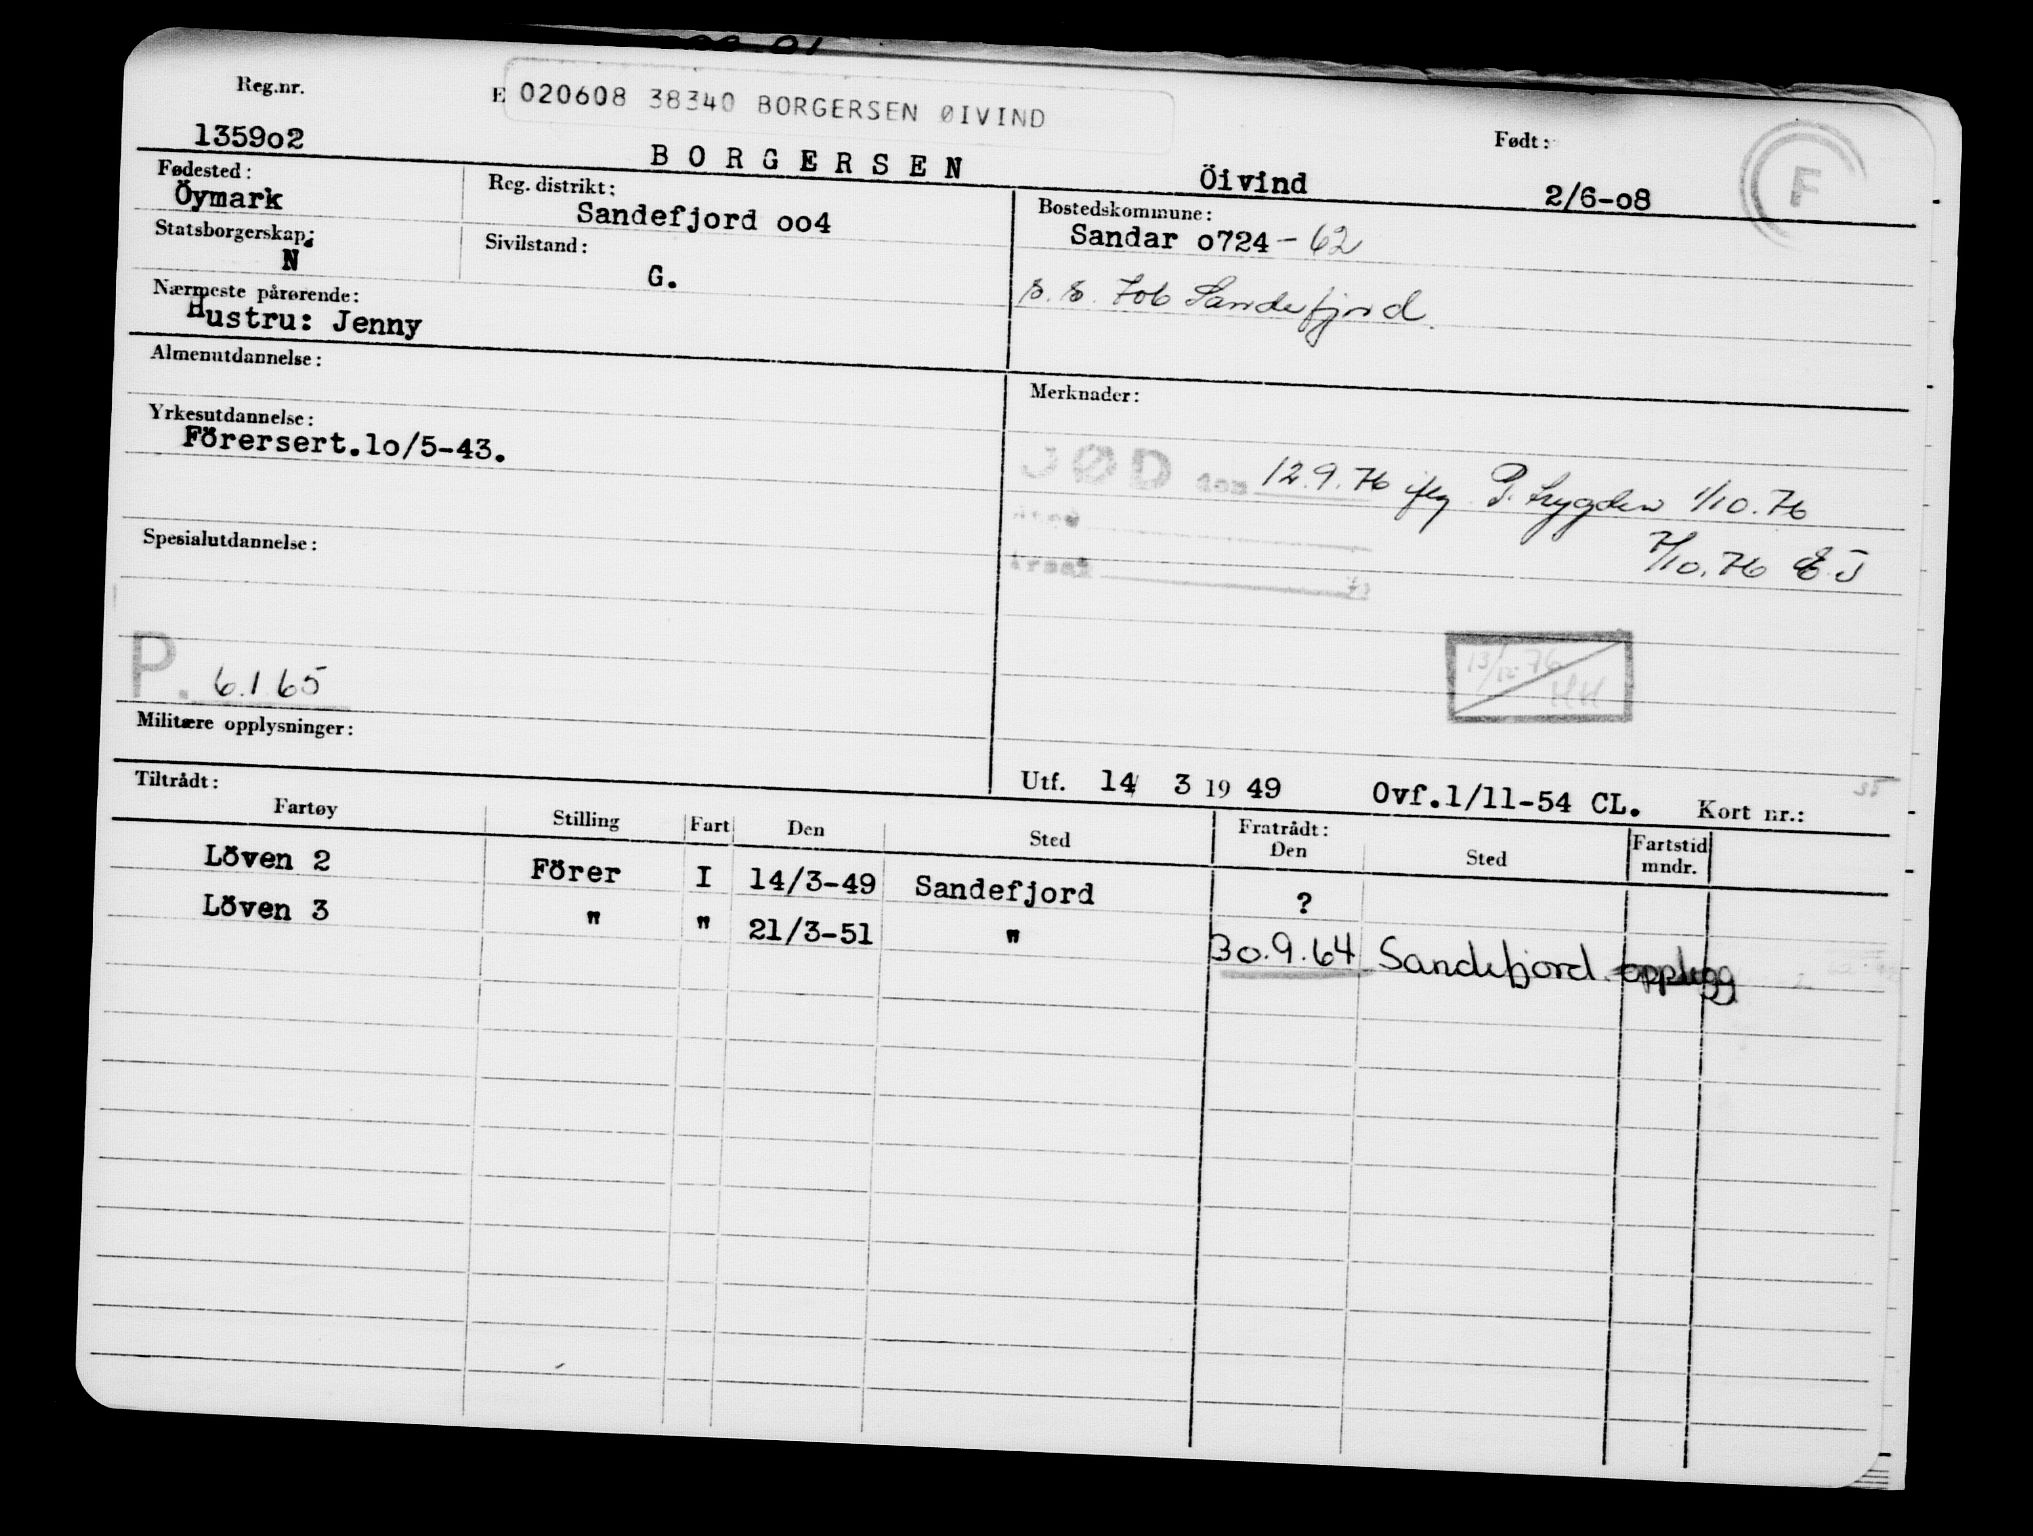 Reg.nr.
E 020608 38340 BORGERSEN ØIVIND
1359o2
BORGERSEN
Öivind
Født:
2/6-o8
F
Fødested:
Öymark
Reg. distrikt:
Sandefjord oo4
Bostedskommune:
Sandar o724 - 62
Statsborgerskap:
N
Sivilstand:
G.
Sandefjord
Nærmeste pårørende:
Hustru: Jenny
Almenutdannelse:
Merknader:
Yrkesutdannelse:
Förersert.lo/5-43.
DØD den 12.9.76 iflg P. trygden 1/10.76
7/10.76 EJ
Spesialutdannelse:
13/12-76
HH
P. 6.1.65
Militære opplysninger:
Utf. 14 3 19 49 Ovf.1/11-54 CL. Kort nr.:
Tiltrådt:
Fartøy Stilling Fart Den Sted Fratrådt: Den Sted Fartstid mndr.
Löven 2 Förer I 14/3-49 Sandefjord ?
Löven 3 " " 21/3-51 " 30.9.64 Sandefjord opplegg